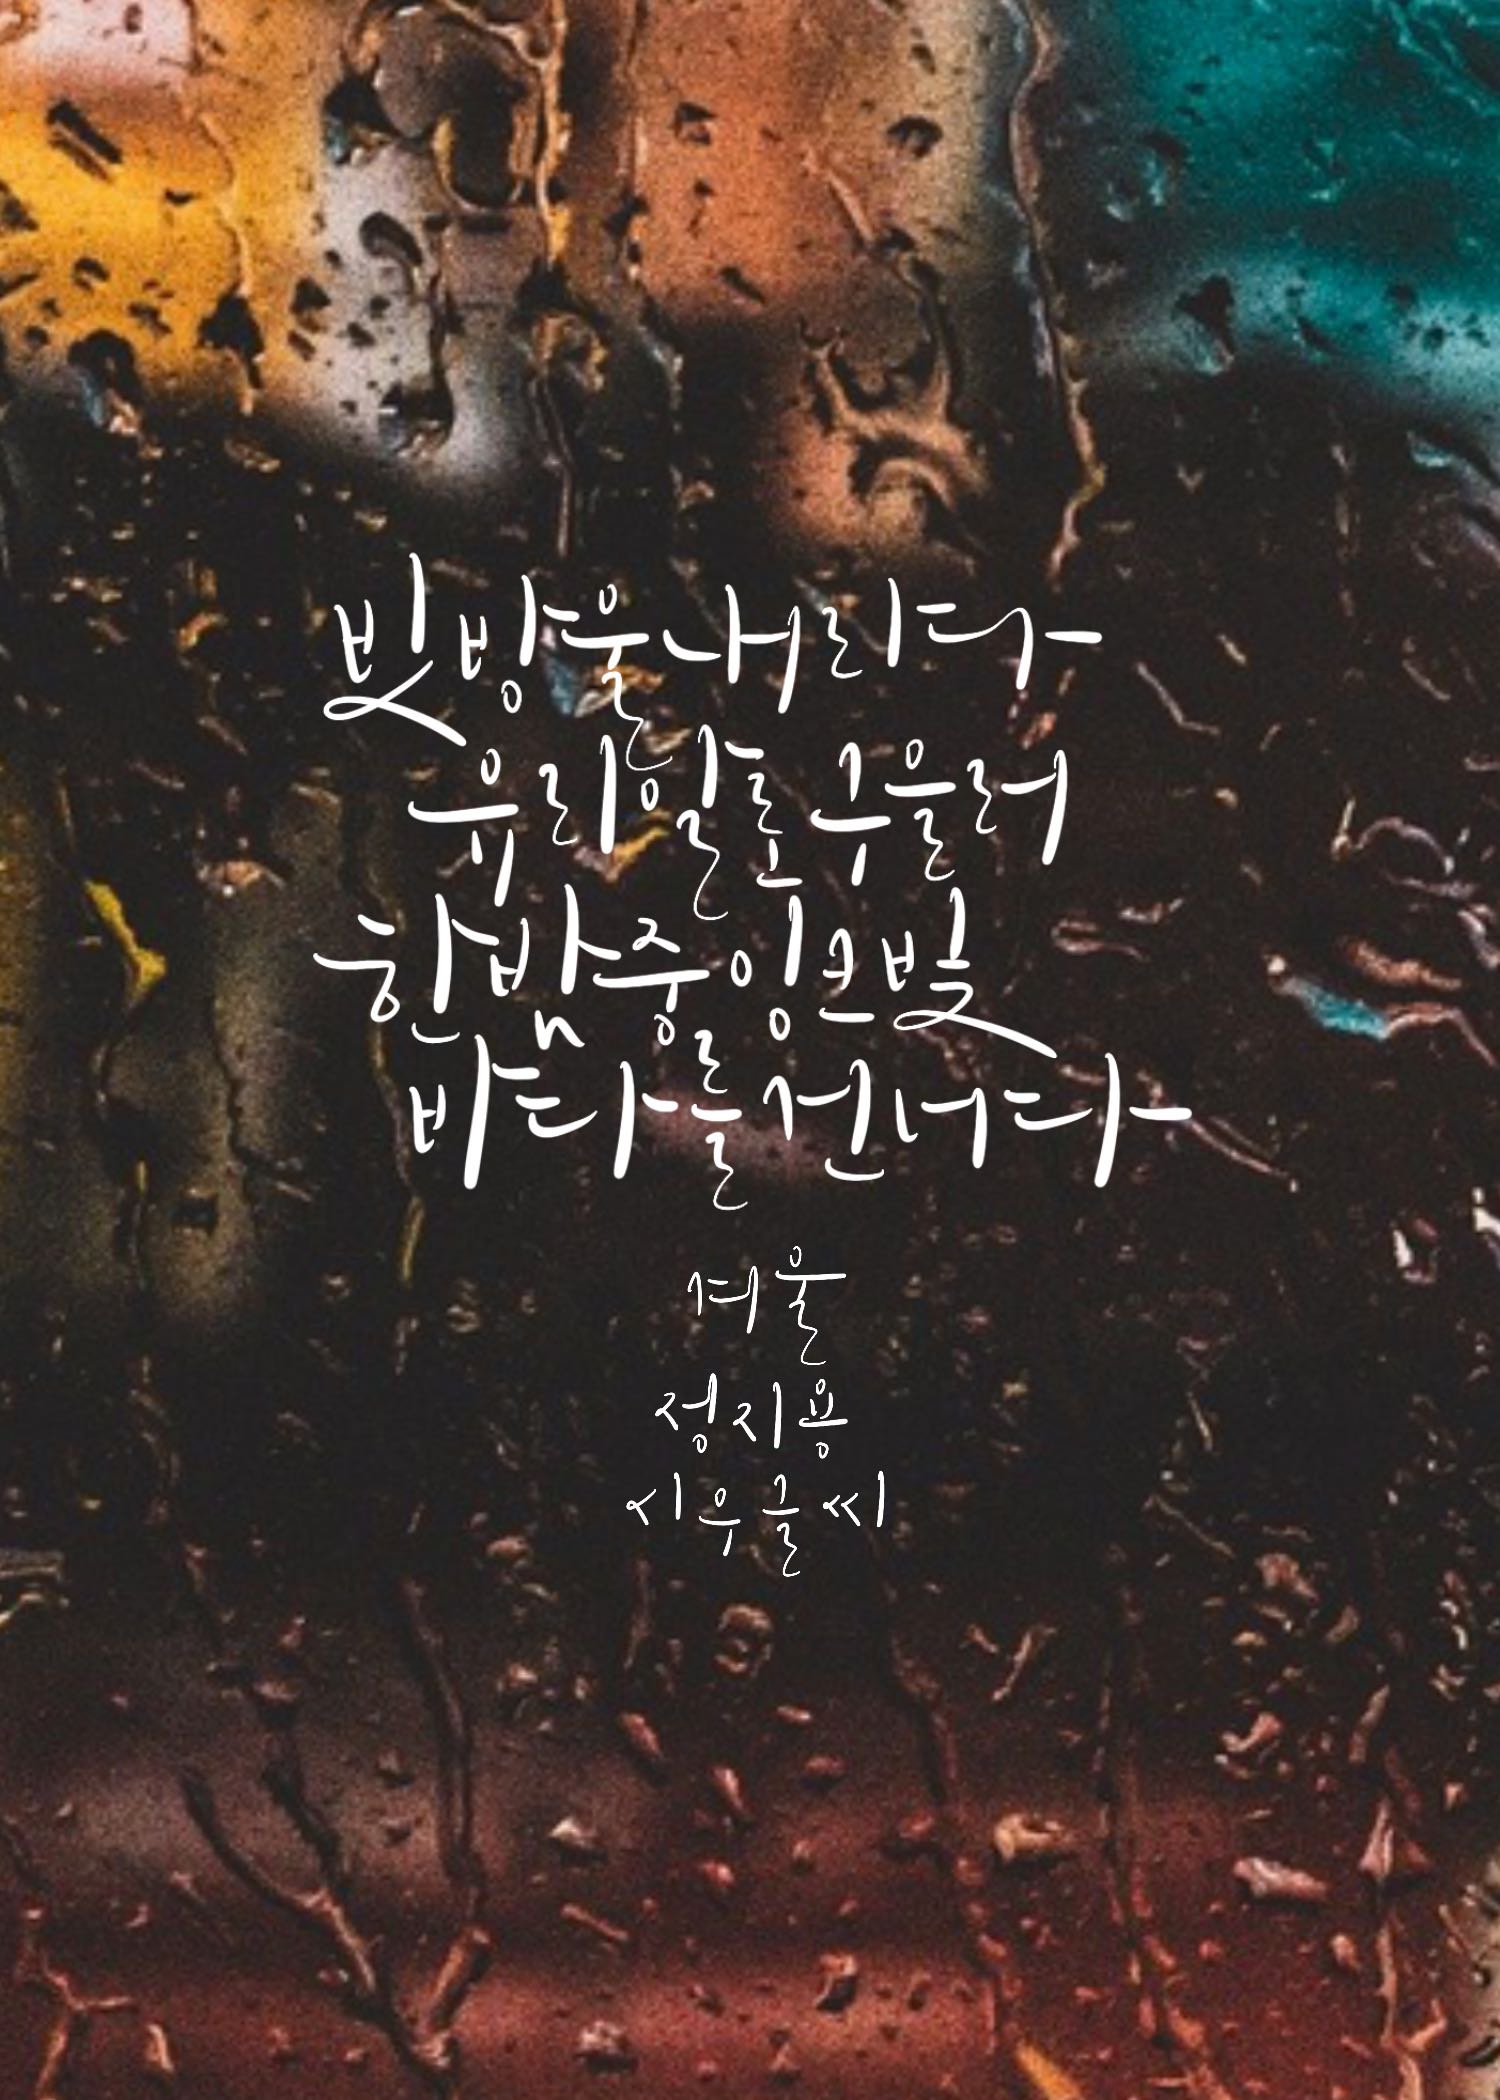 빗방울 내리다
유리알로 구을러
한밤중 잉크빛
바다를 건너다
겨울
정지용
시우글씨